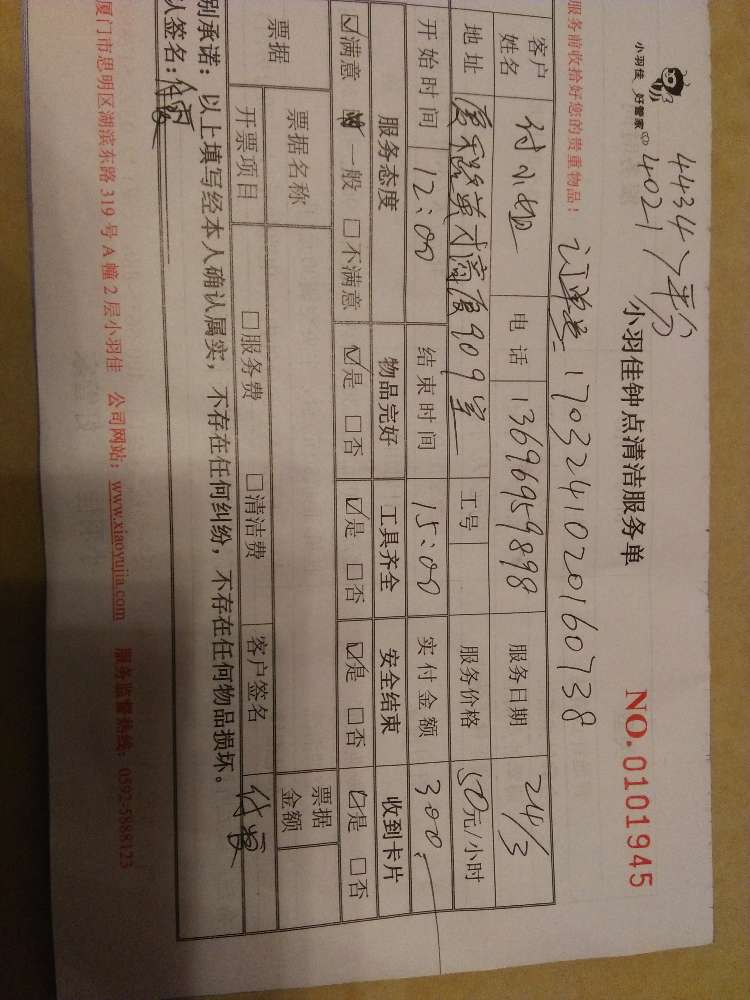 4434
4021 >平分
小羽佳 好管家
小羽佳钟点清洁服务单
NO. 0101945
服务前收拾好您的贵重物品！
订单号 1703241020160738
客户姓名 付小姐 电话 13696959898 服务日期 24/3
地址 英才商厦909室 工号 服务价格 50元/小时
开始时间 12:00 结束时间 15:00 实付金额 300.
服务态度 物品完好 工具齐全 安全结束 收到卡片
☑满意 一般 □不满意 ☑是 □否 ☑是 □否 ☑是 □否 ☑是 □否
票据 票据名称 票据金额
开票项目 □服务费 □清洁费 客户签名
别承诺：以上填写经本人确认属实，不存在任何纠纷，不存在任何物品损坏。
认签名：
厦门市思明区湖滨东路 319 号 A 幢 2 层小羽佳 公司网站：www.xiaoyujia.com 服务监督热线：0592-5888123